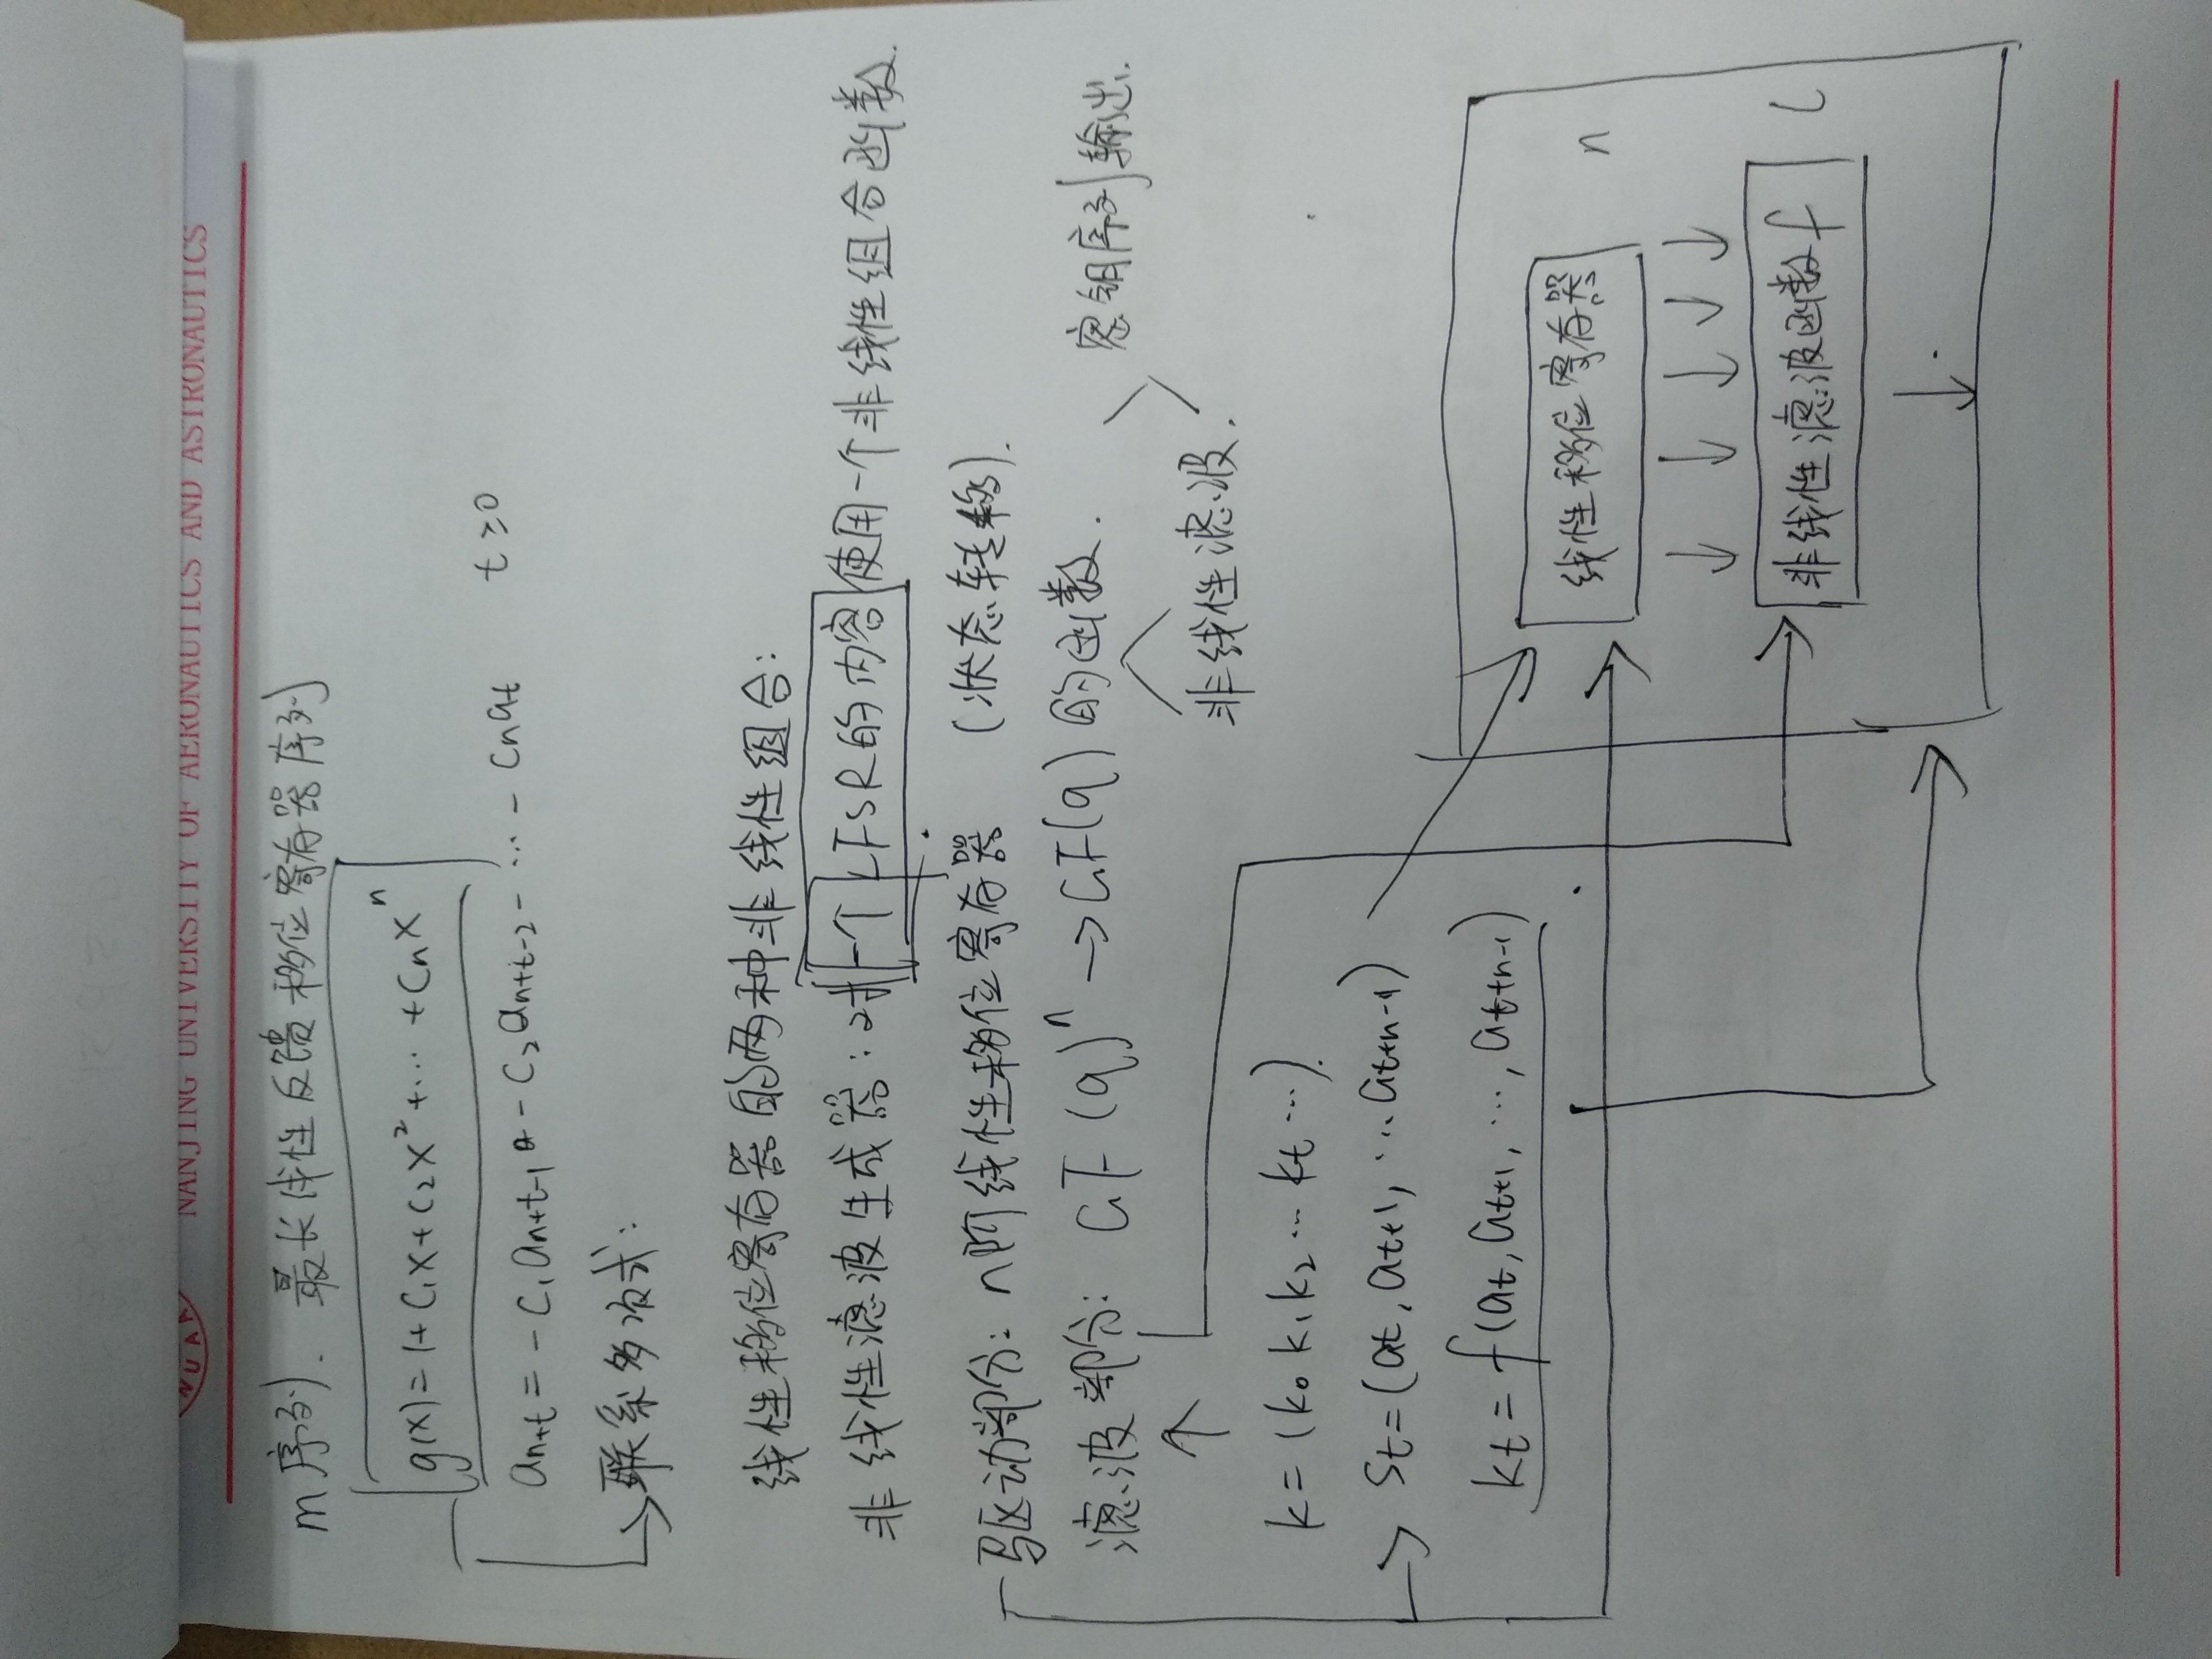 NUAA
NANJING UNIVERSITY OF AERONAUTICS AND ASTRONAUTICS
m序列. 最长线性反馈移位寄存器序列
g(x)=1+C₁x+C₂x²+⋯+Cₙxⁿ
aₙ₊ₜ=-C₁aₙ₊ₜ₋₁-C₂aₙ₊ₜ₋₂-⋯-Cₙaₜ t≥0
联系多项式:
线性移位寄存器的两种非线性组合:
非线性滤波生成器:对一个LFSR的内容使用一个非线性组合函数.
驱动部分: n阶线性移位寄存器 (状态转移).
滤波部分: GF(q)ⁿ→GF(q)的函数.
密钥序列输出.
非线性滤波.
k=(k₀k₁k₂⋯kₜ⋯).
Sₜ=(aₜ,aₜ₊₁,⋯aₜ₊ₙ₋₁)
kₜ=f(aₜ,aₜ₊₁,⋯,aₜ₊ₙ₋₁)
线性移位寄存器 n
非线性滤波函数f